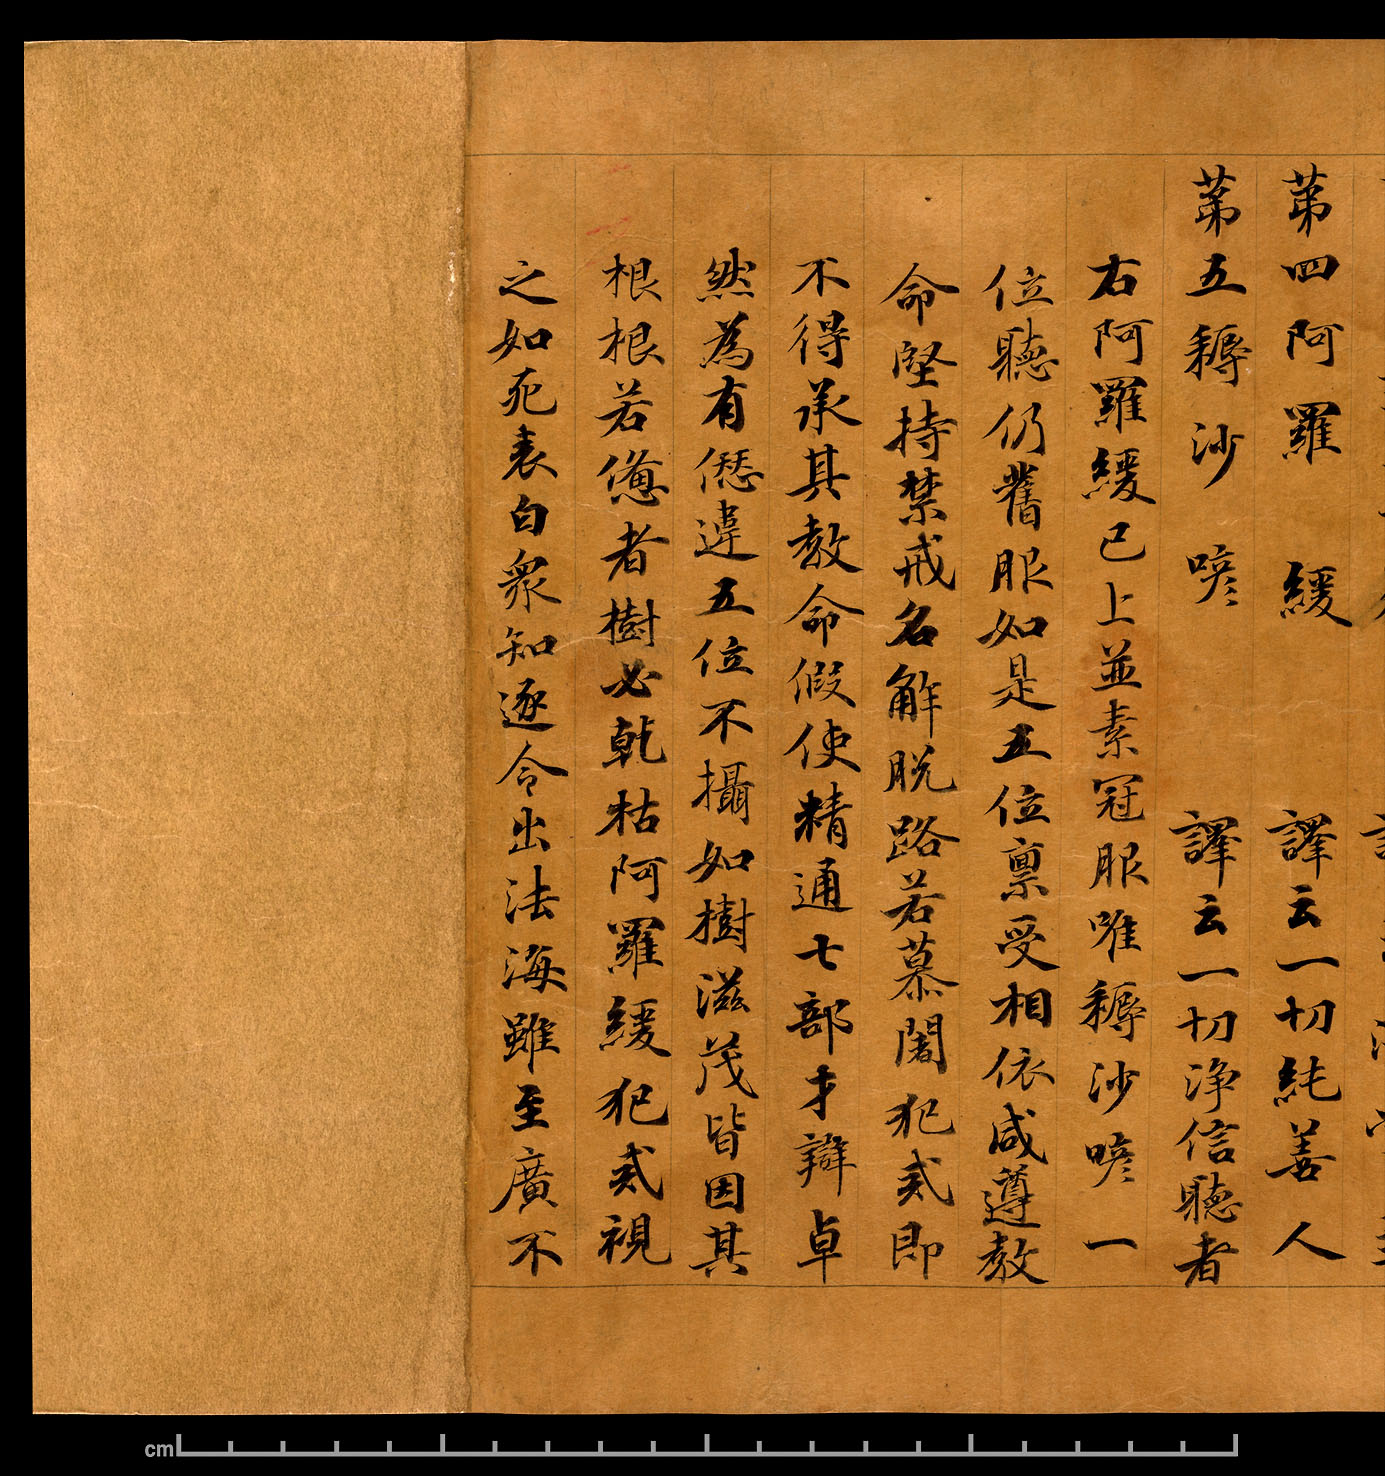 第四阿羅緩 譯云一切純善人
第五耨沙喭 譯云一切淨信聽者
右阿羅緩已上並素冠服唯耨沙喭一
位聽仍舊服如是五位稟受相依咸遵教
命堅持禁戒名解脫路若慕闍犯貳即
不得承其教命假使精通七部才辯卓
然為有僁違五位不攝如樹滋茂皆因其
根根若憊者樹必乾枯阿羅緩犯貳視
之如死表白眾知逐令出法海雖至廣不
cm